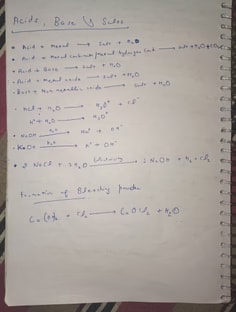 Acids, Base & Salts
• Acid + Metal → Salt + H₂
• Acid + Metal carbonate/Metal hydrogen Carb → Salt + H₂O + CO₂
• Acid + Base → Salt + H₂O
- Acid + Metal oxide → Salt + H₂O
- Base + Non metallic oxide → Salt + H₂O
- HCl + H₂O → H₃O⁺ + Cl⁻
H⁺ + H₂O → H₃O⁺
• NaOH → Na⁺ + OH⁻
- KOH → K⁺ + OH⁻
• 2 NaCl + 2H₂O → 2 NaOH + H₂ + Cl₂
Formation of Bleaching powder
Ca(OH)₂ + Cl₂ → CaOCl₂ + H₂O